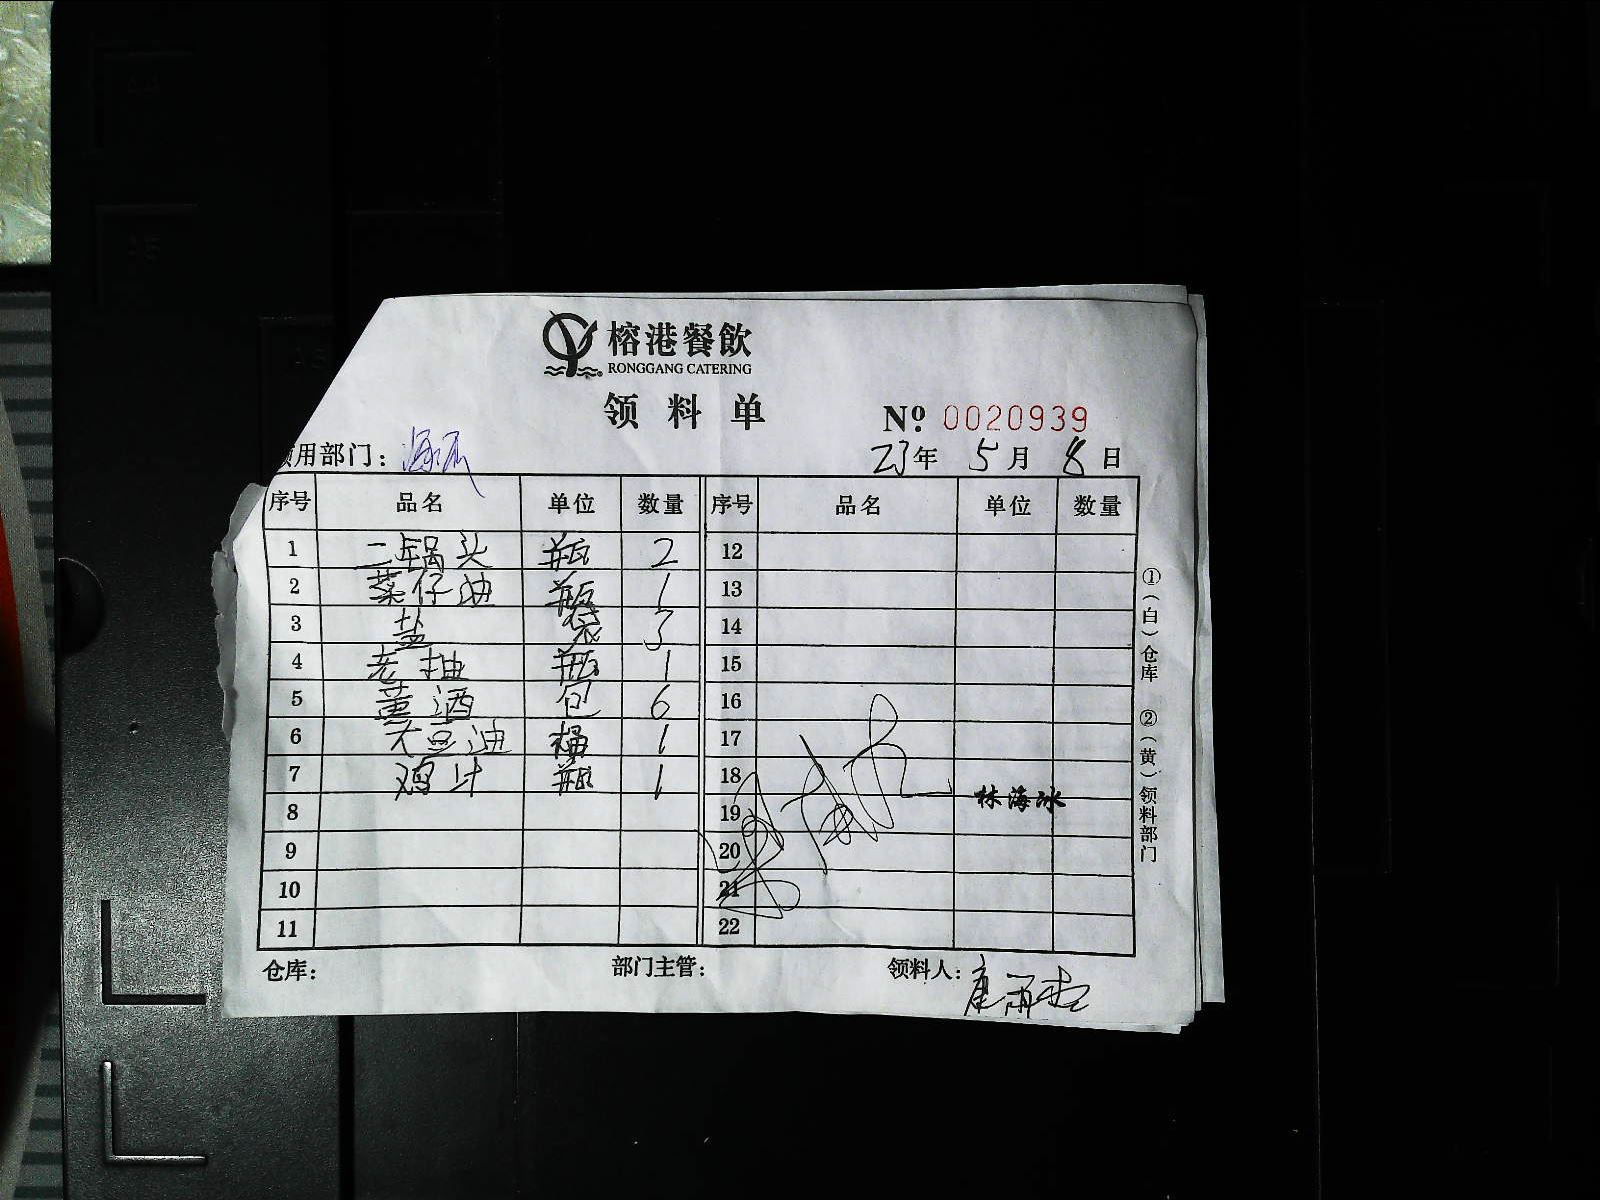 榕港餐飲
RONGGANG CATERING
领料单
№ 0020939
领用部门：
23年 5月 8日
序号 品名 单位 数量 序号 品名 单位 数量
1 二锅头 瓶 2 12
2 菜仔油 瓶 1 13
3 盐 袋 3 14
4 老抽 瓶 1 15
5 黄酒 包 6 16
6 大豆油 桶 1 17
7 鸡汁 瓶 1 18
林海冰
8 19
9 20
10 21
11 22
仓库： 部门主管： 领料人：
①（白）仓库 ②（黄）领料部门